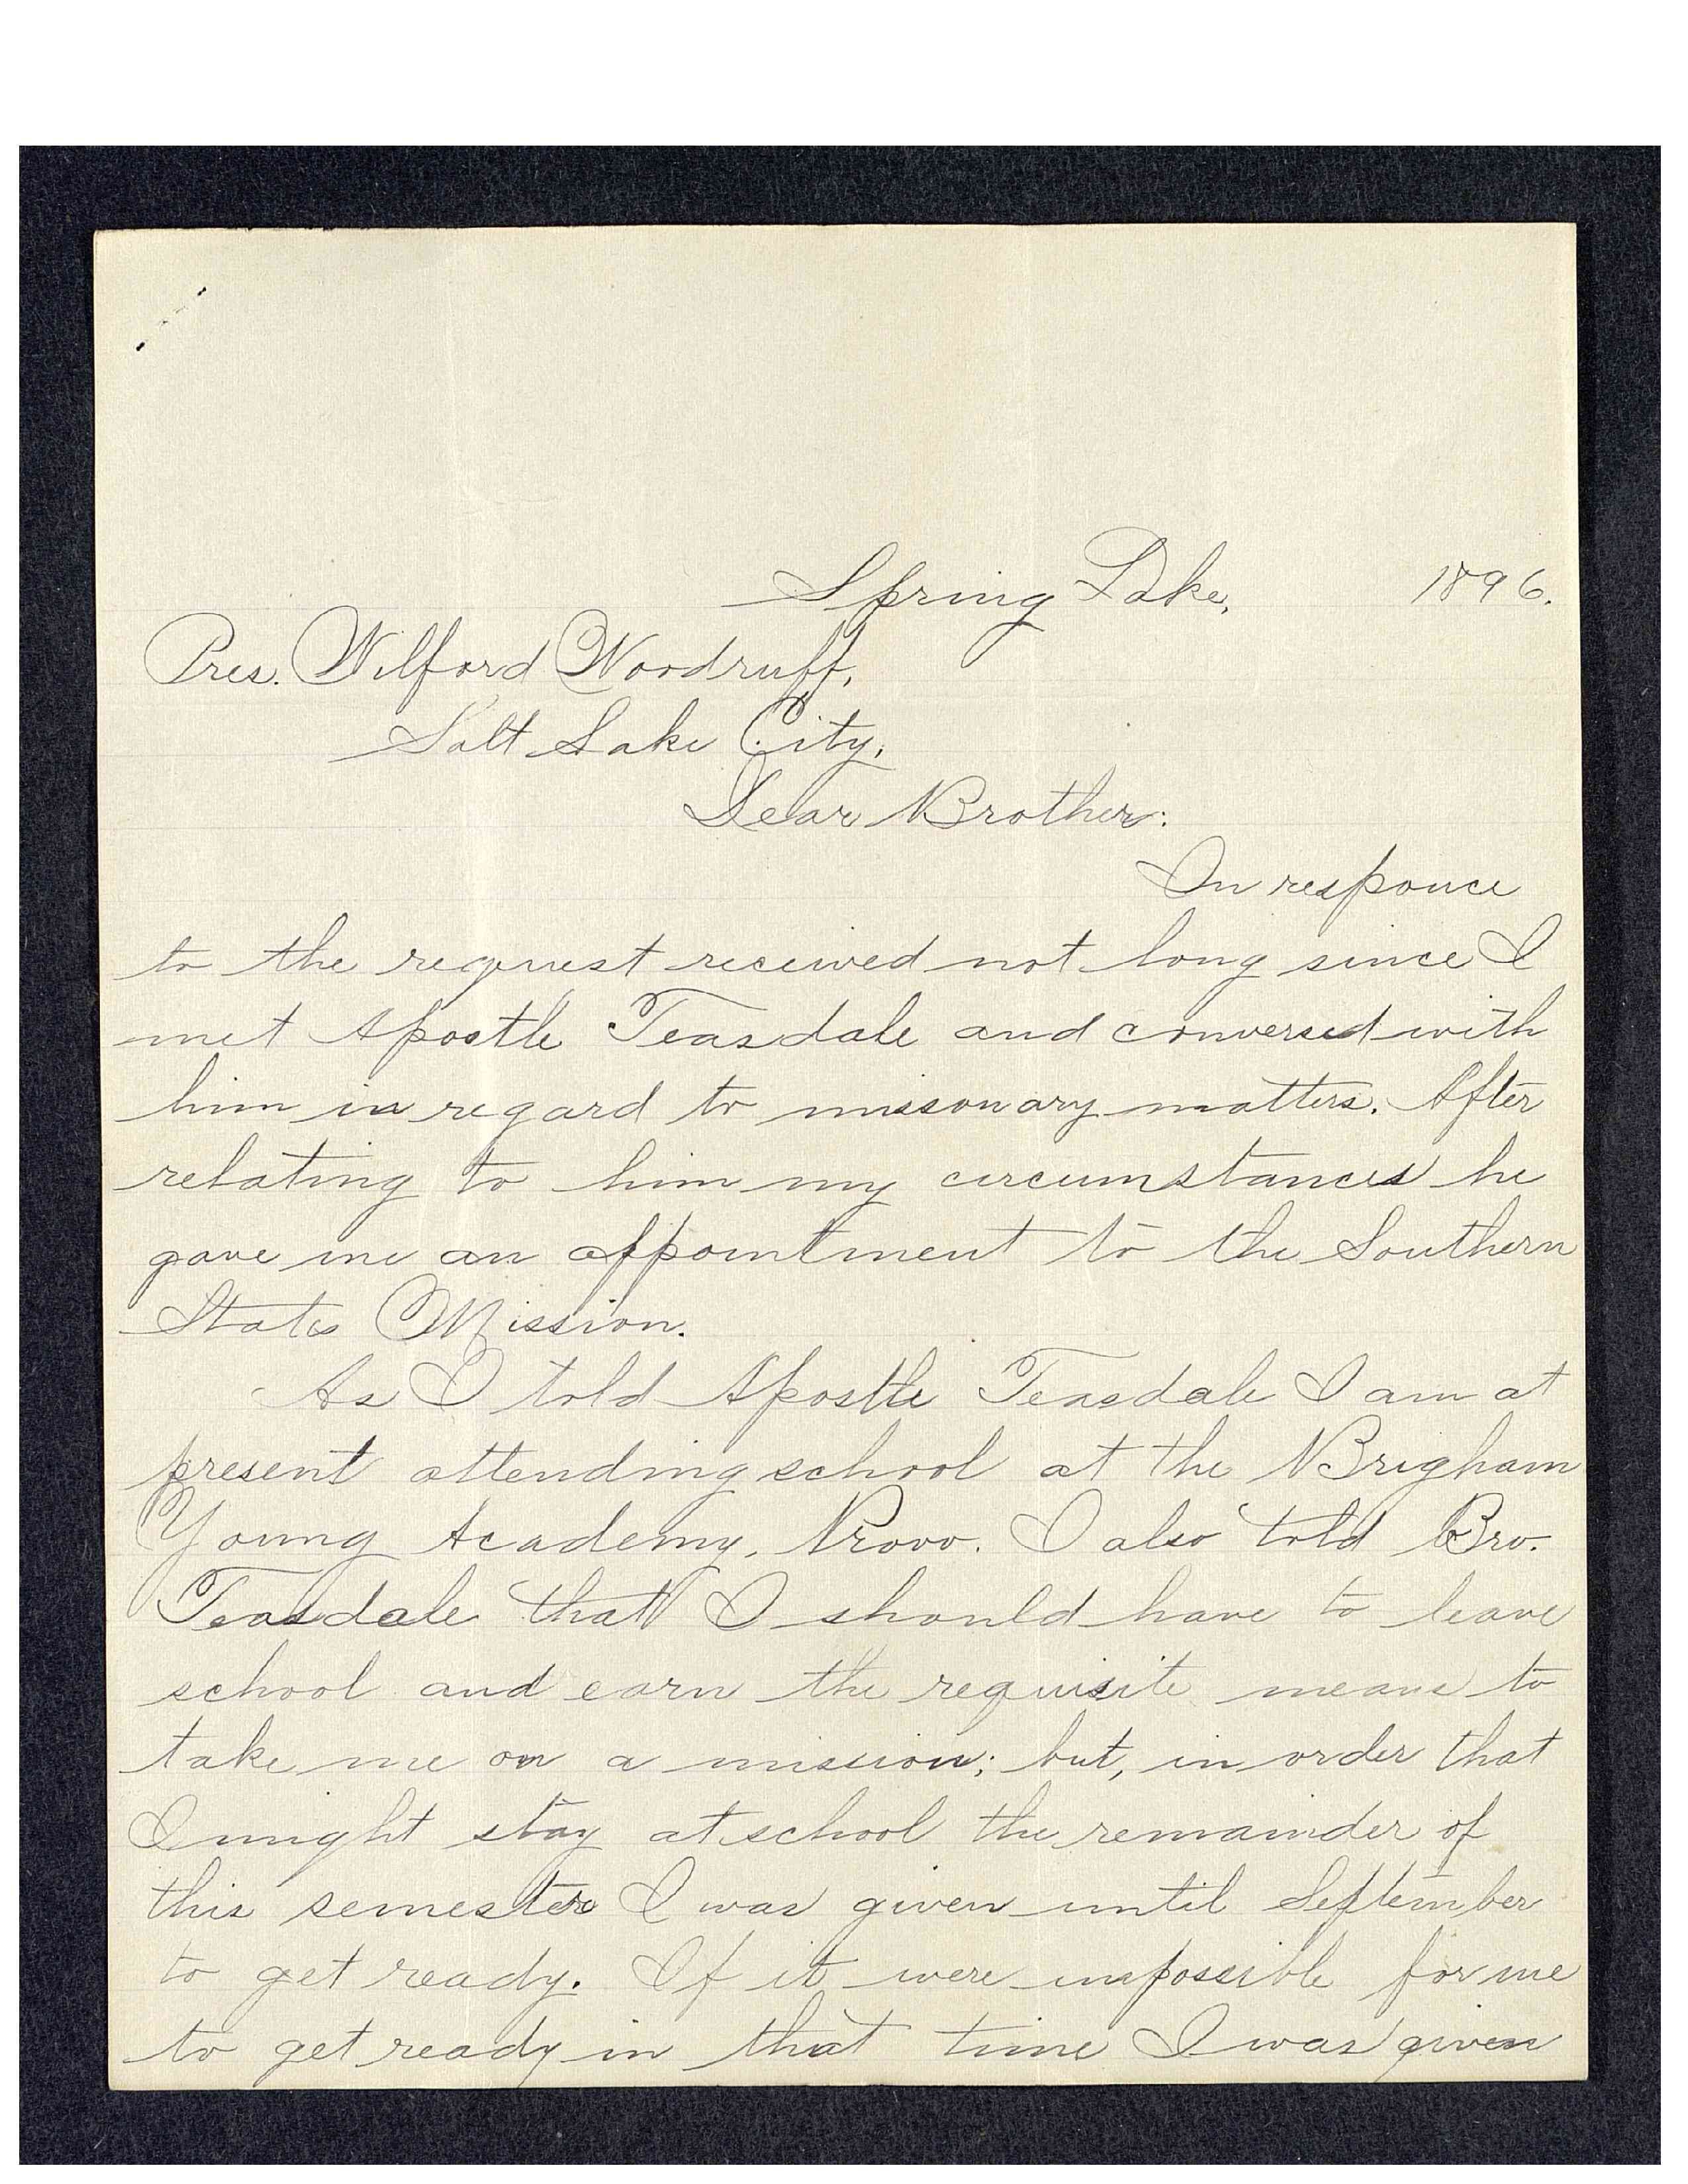 Spring Lake, 1896.
Pres. Wilford Woodruff,
Salt Lake City,
Dear Brother:
In responce
to the request received not long since I
met Apostle Teasdale and conversed with
him in regard to missonary matters. After
relating to him my circumstances he
gave me an appointment to the Southern
States Mission.
As I told Apostle Teasdale I am at
present attending school at the Brigham
Young Academy, Provo. I also told Bro.
Teasdale that I should have to leave
school and earn the requisite means to
take me on a mission; but, in order that
I might stay at school the remainder of
this semester I was given until September
to get ready. If it were impossible for me
to get ready in that time I was given